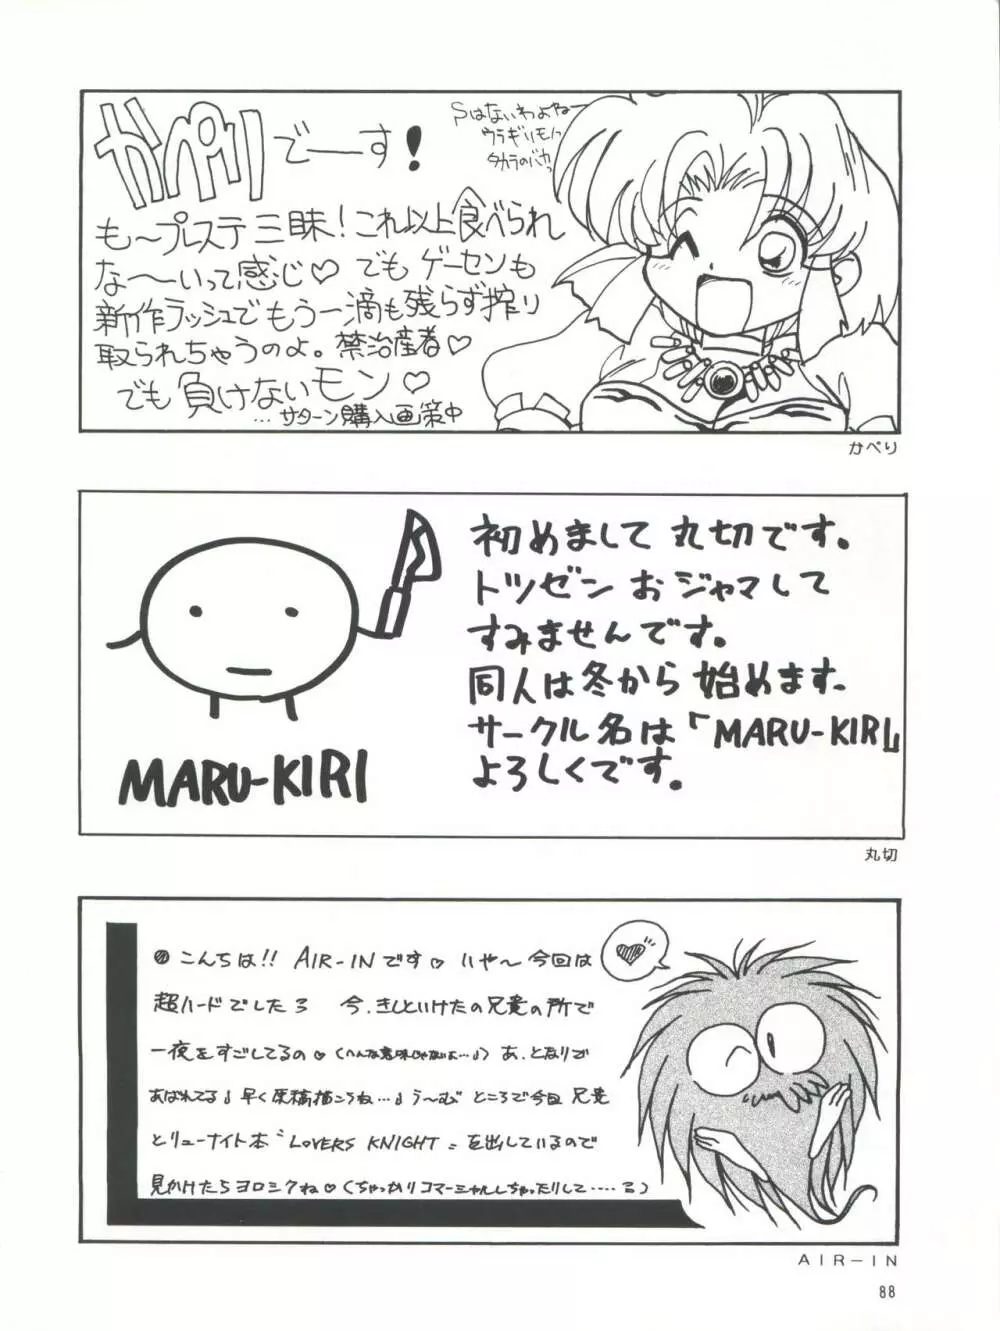 かぺりでーす!
Sはないわよねー
ウラギリモノッ
タカラのバカっ
も〜プレステ三昧!これ以上食べられ
な〜いって感じ♡でもゲーセンも
新作ラッシュでもう一滴も残らず搾り
取られちゃうのよ。禁治産者♡
でも負けないモン♡
…サターン購入画策中
かぺり
初めまして丸切です。
トツゼンおジャマして
すみませんです。
同人は冬から始めます。
サークル名は「MARU-KIRI」
よろしくです。
MARU-KIRI
丸切
こんちは!! AIR-INです♡いや〜今回は
超ハードでした3 今、きしといけたの兄貴の所で
一夜をすごしてるの♡(へんな意味じゃないよ…♪)あ、となりで
あばれてる♪早く原稿描こうね…♪う〜むところで今回兄貴
とリューナイト本〝LOVERS KNIGHT〟を出しているので
見かけたらヨロシクね♡(ちゃっかりコマーシャルしちゃったりして……3)
AIR-IN
88